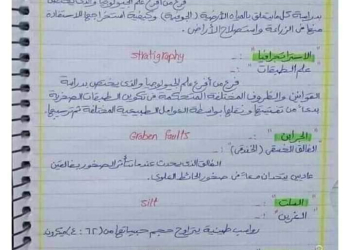 بدراسة كل ما يتعلق بالمياه الأرضية (الجوفية) وكيفية استخراجها للاستفادة
منها في الزراعة واستصلاح الأراضي.
الاستراتجرافيا stratigraphy
علم الطبقات
فرع من أفرع علم الجيولوجيا والذي يختص بدراسة
القوانين والظروف المختلفة المتحكمة في تكوين الطبقات الصخرية
بدءاً من تفتيتها ونقلها بواسطة العوامل الطبيعية المختلفة ثم ترسيبها
الجرابن Graben faults
الفالق الخسفي (الخندقي)
الفالق الذي يحدث عندما تتأثر الصخور بفالقين
عاديين يتحدان معاً في صخور الحائط العلوي.
السلت silt
الغرين
رواسب طميية يتراوح حجم حبيباتها من